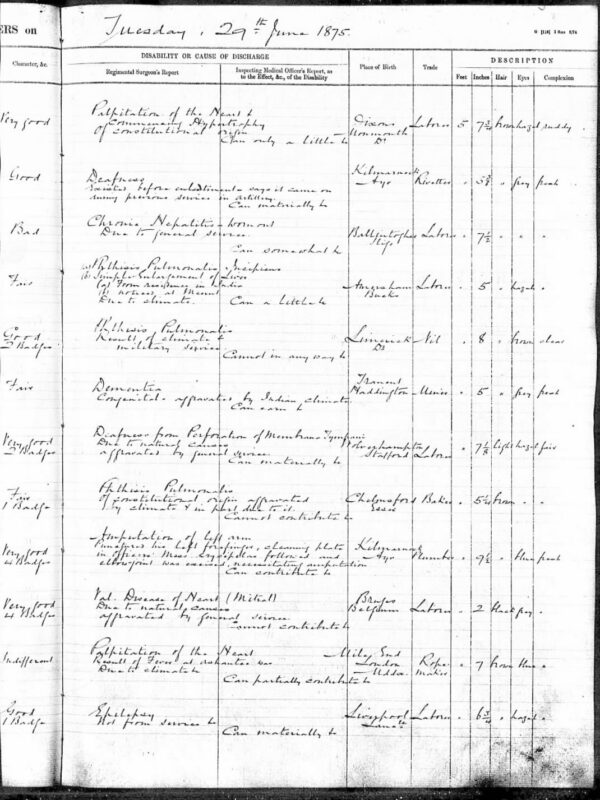 ERS on
Tuesday, 29th June 1875.
DISABILITY OR CAUSE OF DISCHARGE
DESCRIPTION
Character, &c.
Regimental Surgeon's Report
Inspecting Medical Officer's Report, as to the Effect, &c., of the Disability
Place of Birth
Trade
Feet
Inches
Hair
Eyes
Complexion
Very good
Palpitation of the Heart &
of commencing Hypertrophy
of constitutional origin
Can only a little to
Dixons
Monmouth
Labourer 5 7 3/4 brown hazel ruddy
Good
Deafness
existed before enlistment & says it came on
in previous service in artillery.
Can materially to
Kilmarnock
Ayr
Rivetter " 5 3/4 " grey fresh
Bad
Chronic Hepatitis & worn out
Due to general service
Can somewhat to
Sligo
Labourer " 7 1/2 " " "
Fair
(a) Phthisis Pulmonalis - Incipiens
(b) Enlargement of Liver
(a) From residence in India
(b) noticed at Meerut
Due to climate.
Can a little to
Amersham
Bucks
Labourer " 5 " hazel "
Good
2 Badges
Phthisis Pulmonalis
Result of climate &
military service
Cannot in any way to
Limerick
Nil " 8 " brown clear
Fair
Dementia
Congenital - aggravated by Indian climate
Can earn to
Tranent
Haddington
Miner " 5 " grey fresh
Very good
2 Badges
Deafness from Perforation of Membrana Tympani
Due to natural causes
aggravated by general service
Can materially to
Wolverhampton
Stafford
Labourer " 7 1/8 light hazel fair
Fair
1 Badge
Phthisis Pulmonalis
of constitutional origin aggravated
by climate & in part due to it.
Cannot contribute to
Chelmsford
Essex
Baker " 5 1/4 brown " "
Very good
4 Badges
Amputation of left arm
Punctured his left forefinger, cleaning plate
in officers' Mess. Erysipelas followed and
elbow joint was excised, necessitating amputation
Can contribute to
Kilmarnock
Ayr
Plumber " 9 1/2 " blue fresh
Very good
4 Badges
Val. Disease of Heart (Mitral)
Due to natural causes
aggravated by general service
Cannot contribute to
Bruges
Belgium
Labourer " 2 black grey "
Indifferent
Palpitation of the Heart
Result of Fever at Ashantee war
Due to climate to
Can partially contribute to
Mile End
London
Middx.
Rope
maker " 7 brown blue "
Good
1 Badge
Epilepsy
Not from service to
Can materially to
Liverpool
Lancs
Labourer " 6 3/4 " hazel "